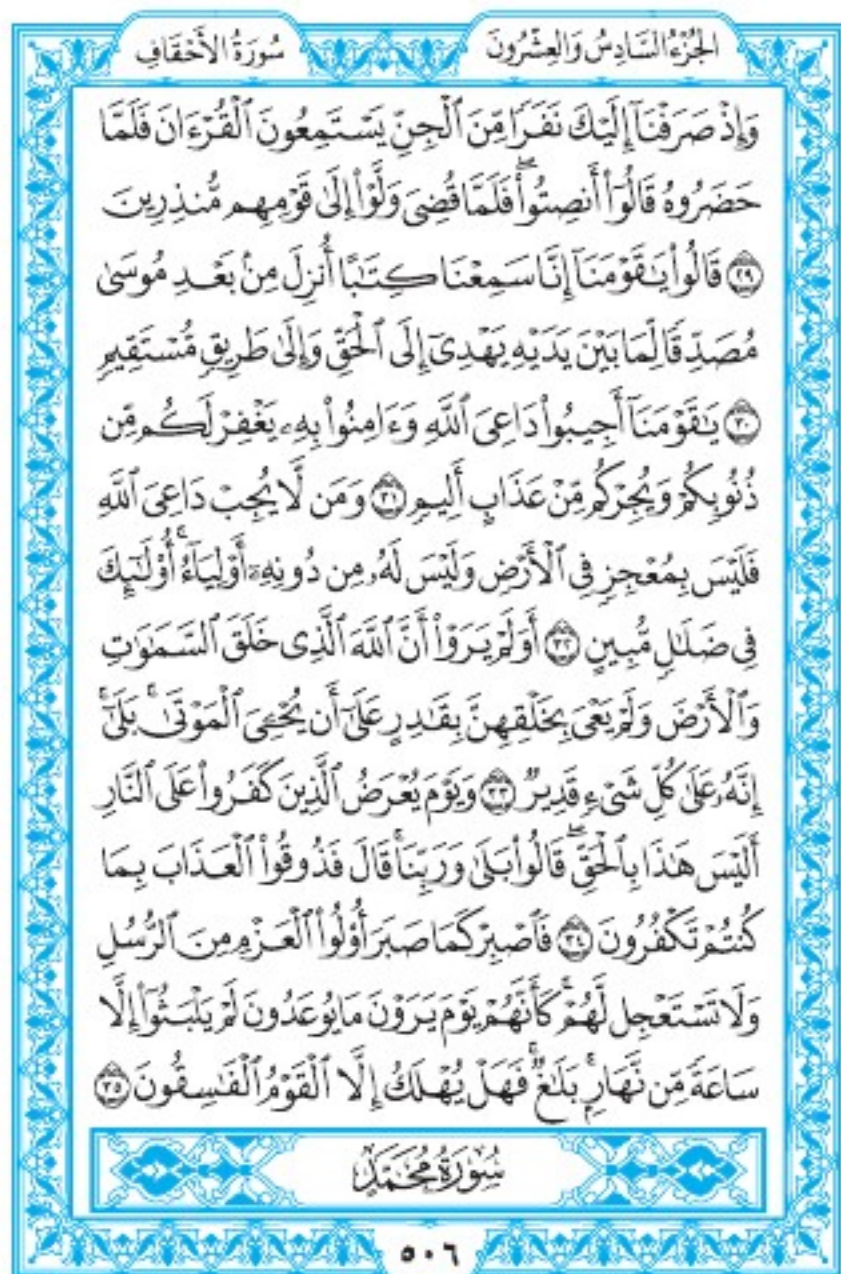 الجُزْءُ السَّادِسُ وَالعِشْرُونَ
سُورَةُ الأَحْقَافِ
وَإِذْ صَرَفْنَآ إِلَيْكَ نَفَرًا مِّنَ ٱلْجِنِّ يَسْتَمِعُونَ ٱلْقُرْءَانَ فَلَمَّا
حَضَرُوهُ قَالُوٓاْ أَنصِتُواْۖ فَلَمَّا قُضِىَ وَلَّوْاْ إِلَىٰ قَوْمِهِم مُّنذِرِينَ
۝٢٩ قَالُواْ يَٰقَوْمَنَآ إِنَّا سَمِعْنَا كِتَٰبًا أُنزِلَ مِنۢ بَعْدِ مُوسَىٰ
مُصَدِّقًا لِّمَا بَيْنَ يَدَيْهِ يَهْدِىٓ إِلَى ٱلْحَقِّ وَإِلَىٰ طَرِيقٍ مُّسْتَقِيمٍ
۝٣٠ يَٰقَوْمَنَآ أَجِيبُواْ دَاعِىَ ٱللَّهِ وَءَامِنُواْ بِهِۦ يَغْفِرْ لَكُم مِّن
ذُنُوبِكُمْ وَيُجِرْكُم مِّنْ عَذَابٍ أَلِيمٍ ۝٣١ وَمَن لَّا يُجِبْ دَاعِىَ ٱللَّهِ
فَلَيْسَ بِمُعْجِزٍ فِى ٱلْأَرْضِ وَلَيْسَ لَهُۥ مِن دُونِهِۦٓ أَوْلِيَآءُۚ أُوْلَٰٓئِكَ
فِى ضَلَٰلٍ مُّبِينٍ ۝٣٢ أَوَلَمْ يَرَوْاْ أَنَّ ٱللَّهَ ٱلَّذِى خَلَقَ ٱلسَّمَٰوَٰتِ
وَٱلْأَرْضَ وَلَمْ يَعْىَ بِخَلْقِهِنَّ بِقَٰدِرٍ عَلَىٰٓ أَن يُحْـِۧىَ ٱلْمَوْتَىٰۚ بَلَىٰٓ
إِنَّهُۥ عَلَىٰ كُلِّ شَىْءٍ قَدِيرٌ ۝٣٣ وَيَوْمَ يُعْرَضُ ٱلَّذِينَ كَفَرُواْ عَلَى ٱلنَّارِ
أَلَيْسَ هَٰذَا بِٱلْحَقِّۖ قَالُواْ بَلَىٰ وَرَبِّنَاۚ قَالَ فَذُوقُواْ ٱلْعَذَابَ بِمَا
كُنتُمْ تَكْفُرُونَ ۝٣٤ فَٱصْبِرْ كَمَا صَبَرَ أُوْلُواْ ٱلْعَزْمِ مِنَ ٱلرُّسُلِ
وَلَا تَسْتَعْجِل لَّهُمْۚ كَأَنَّهُمْ يَوْمَ يَرَوْنَ مَا يُوعَدُونَ لَمْ يَلْبَثُوٓاْ إِلَّا
سَاعَةً مِّن نَّهَارِۭۚ بَلَٰغٌۚ فَهَلْ يُهْلَكُ إِلَّا ٱلْقَوْمُ ٱلْفَٰسِقُونَ ۝٣٥
سُورَةُ مُحَمَّدٍ
٥٠٦